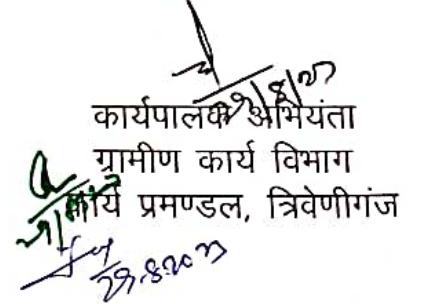 कार्यपालक अभियंता
ग्रामीण कार्य विभाग
कार्य प्रमण्डल, त्रिवेणीगंज
29.8.2023